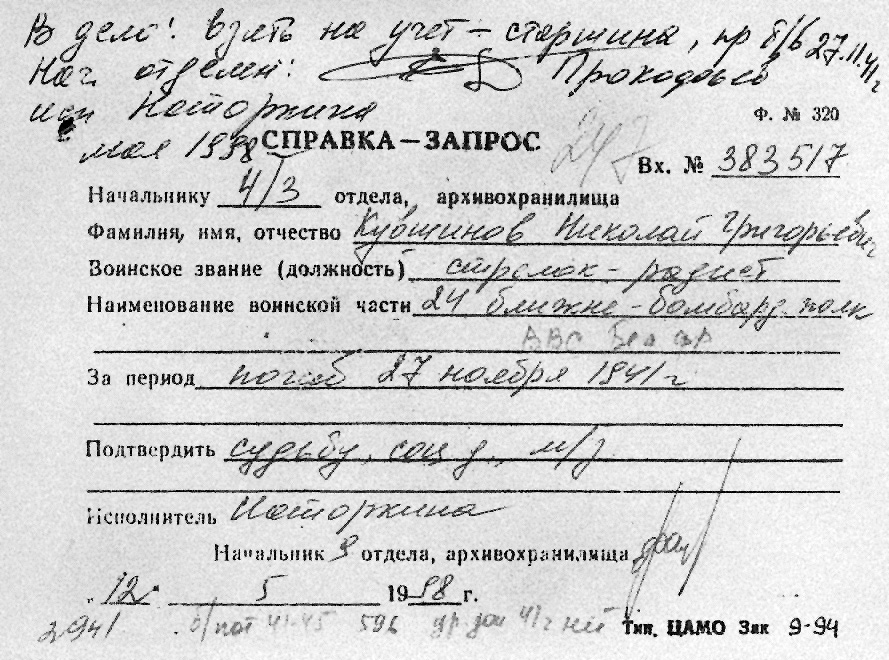 В дело! Взять на учет - старшина, пр б/в 27.11.41г
Нач. отделен: Прокофьев
исп Каторкина
мая 1998
СПРАВКА — ЗАПРОС
Ф. № 320
247
Вх. № 383517
Начальнику 4/3 отдела, архивохранилища
Фамилия, имя, отчество Кувшинов Николай Григорьевич
Воинское звание (должность) стрелок-радист
Наименование воинской части 24 ближне-бомбард. полк
ВВС
За период погиб 27 ноября 1941 г
Подтвердить судьбу, соц д., м/з
Исполнитель Каторкина
Начальник 9 отдела, архивохранилища
„ 12 " 5 1998 г.
2941 б/пот 41-45 596 41г нет
Тип. ЦАМО Зак 9-94